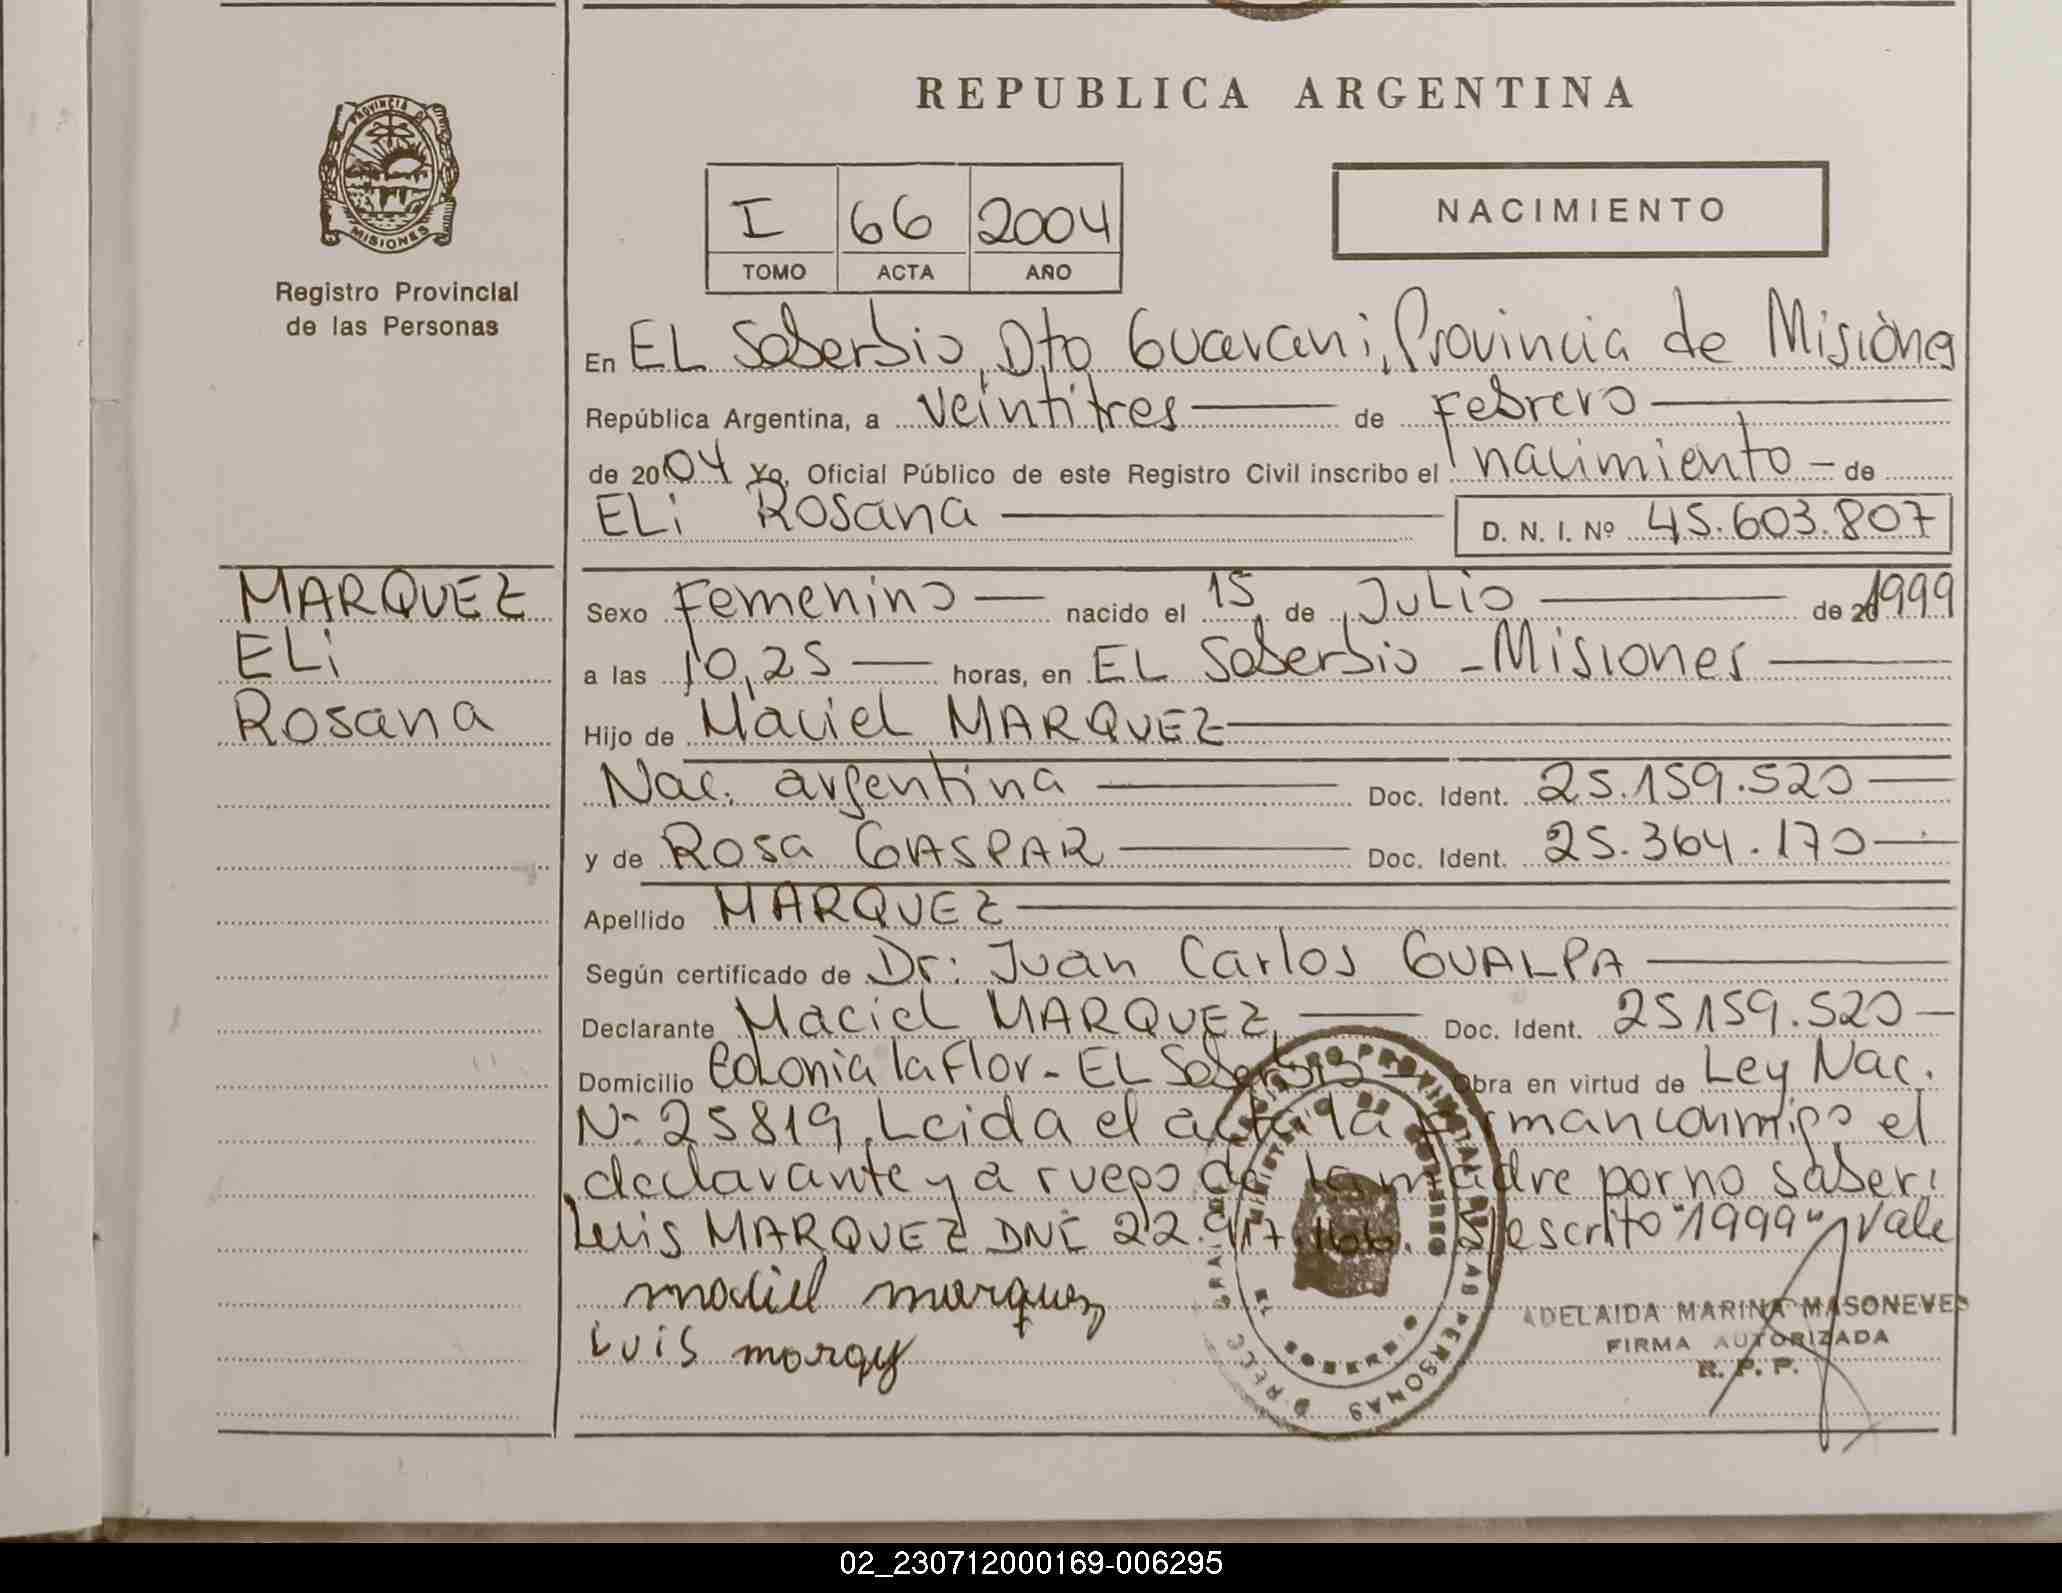 REPUBLICA ARGENTINA
PROVINCIA DE
MISIONES
Registro Provincial
de las Personas
I 66 2004
TOMO ACTA AÑO
NACIMIENTO
En EL Soberbio, Dto Guarani, Provincia de Misiones
República Argentina, a veintitres de Febrero
de 2004 Yo, Oficial Público de este Registro Civil inscribo el nacimiento de
ELi Rosana D. N. I. Nº 45.603.807
MARQUEZ
ELi
Rosana
Sexo Femenino nacido el 15 de JuLio de 20 1999
a las 10,25 horas, en EL Soberbio - Misiones
Hijo de Maciel MARQUEZ
Nac. argentina Doc. Ident. 25.159.520
y de Rosa GASPAR Doc. Ident. 25.364.170
Apellido MARQUEZ
Según certificado de Dr: Juan Carlos GUALPA
Declarante Maciel MARQUEZ Doc. Ident. 25159.520
Domicilio Colonia la Flor - EL Soberbio Obra en virtud de Ley Nac.
Nº 25819. Leida el acta la firman conmigo el
declarante y a ruego de la madre por no saber:
Luis MARQUEZ DNI 22.917.166. escrito "1999" vale
maciel marquez
Luis
ADELAIDA MARINA MASONEVES
FIRMA AUTORIZADA
R. P. P.
REGISTRO PROVINCIAL DE LAS PERSONAS
MINISTERIO DE GOBIERNO
EL SOBERBIO
02_230712000169-006295